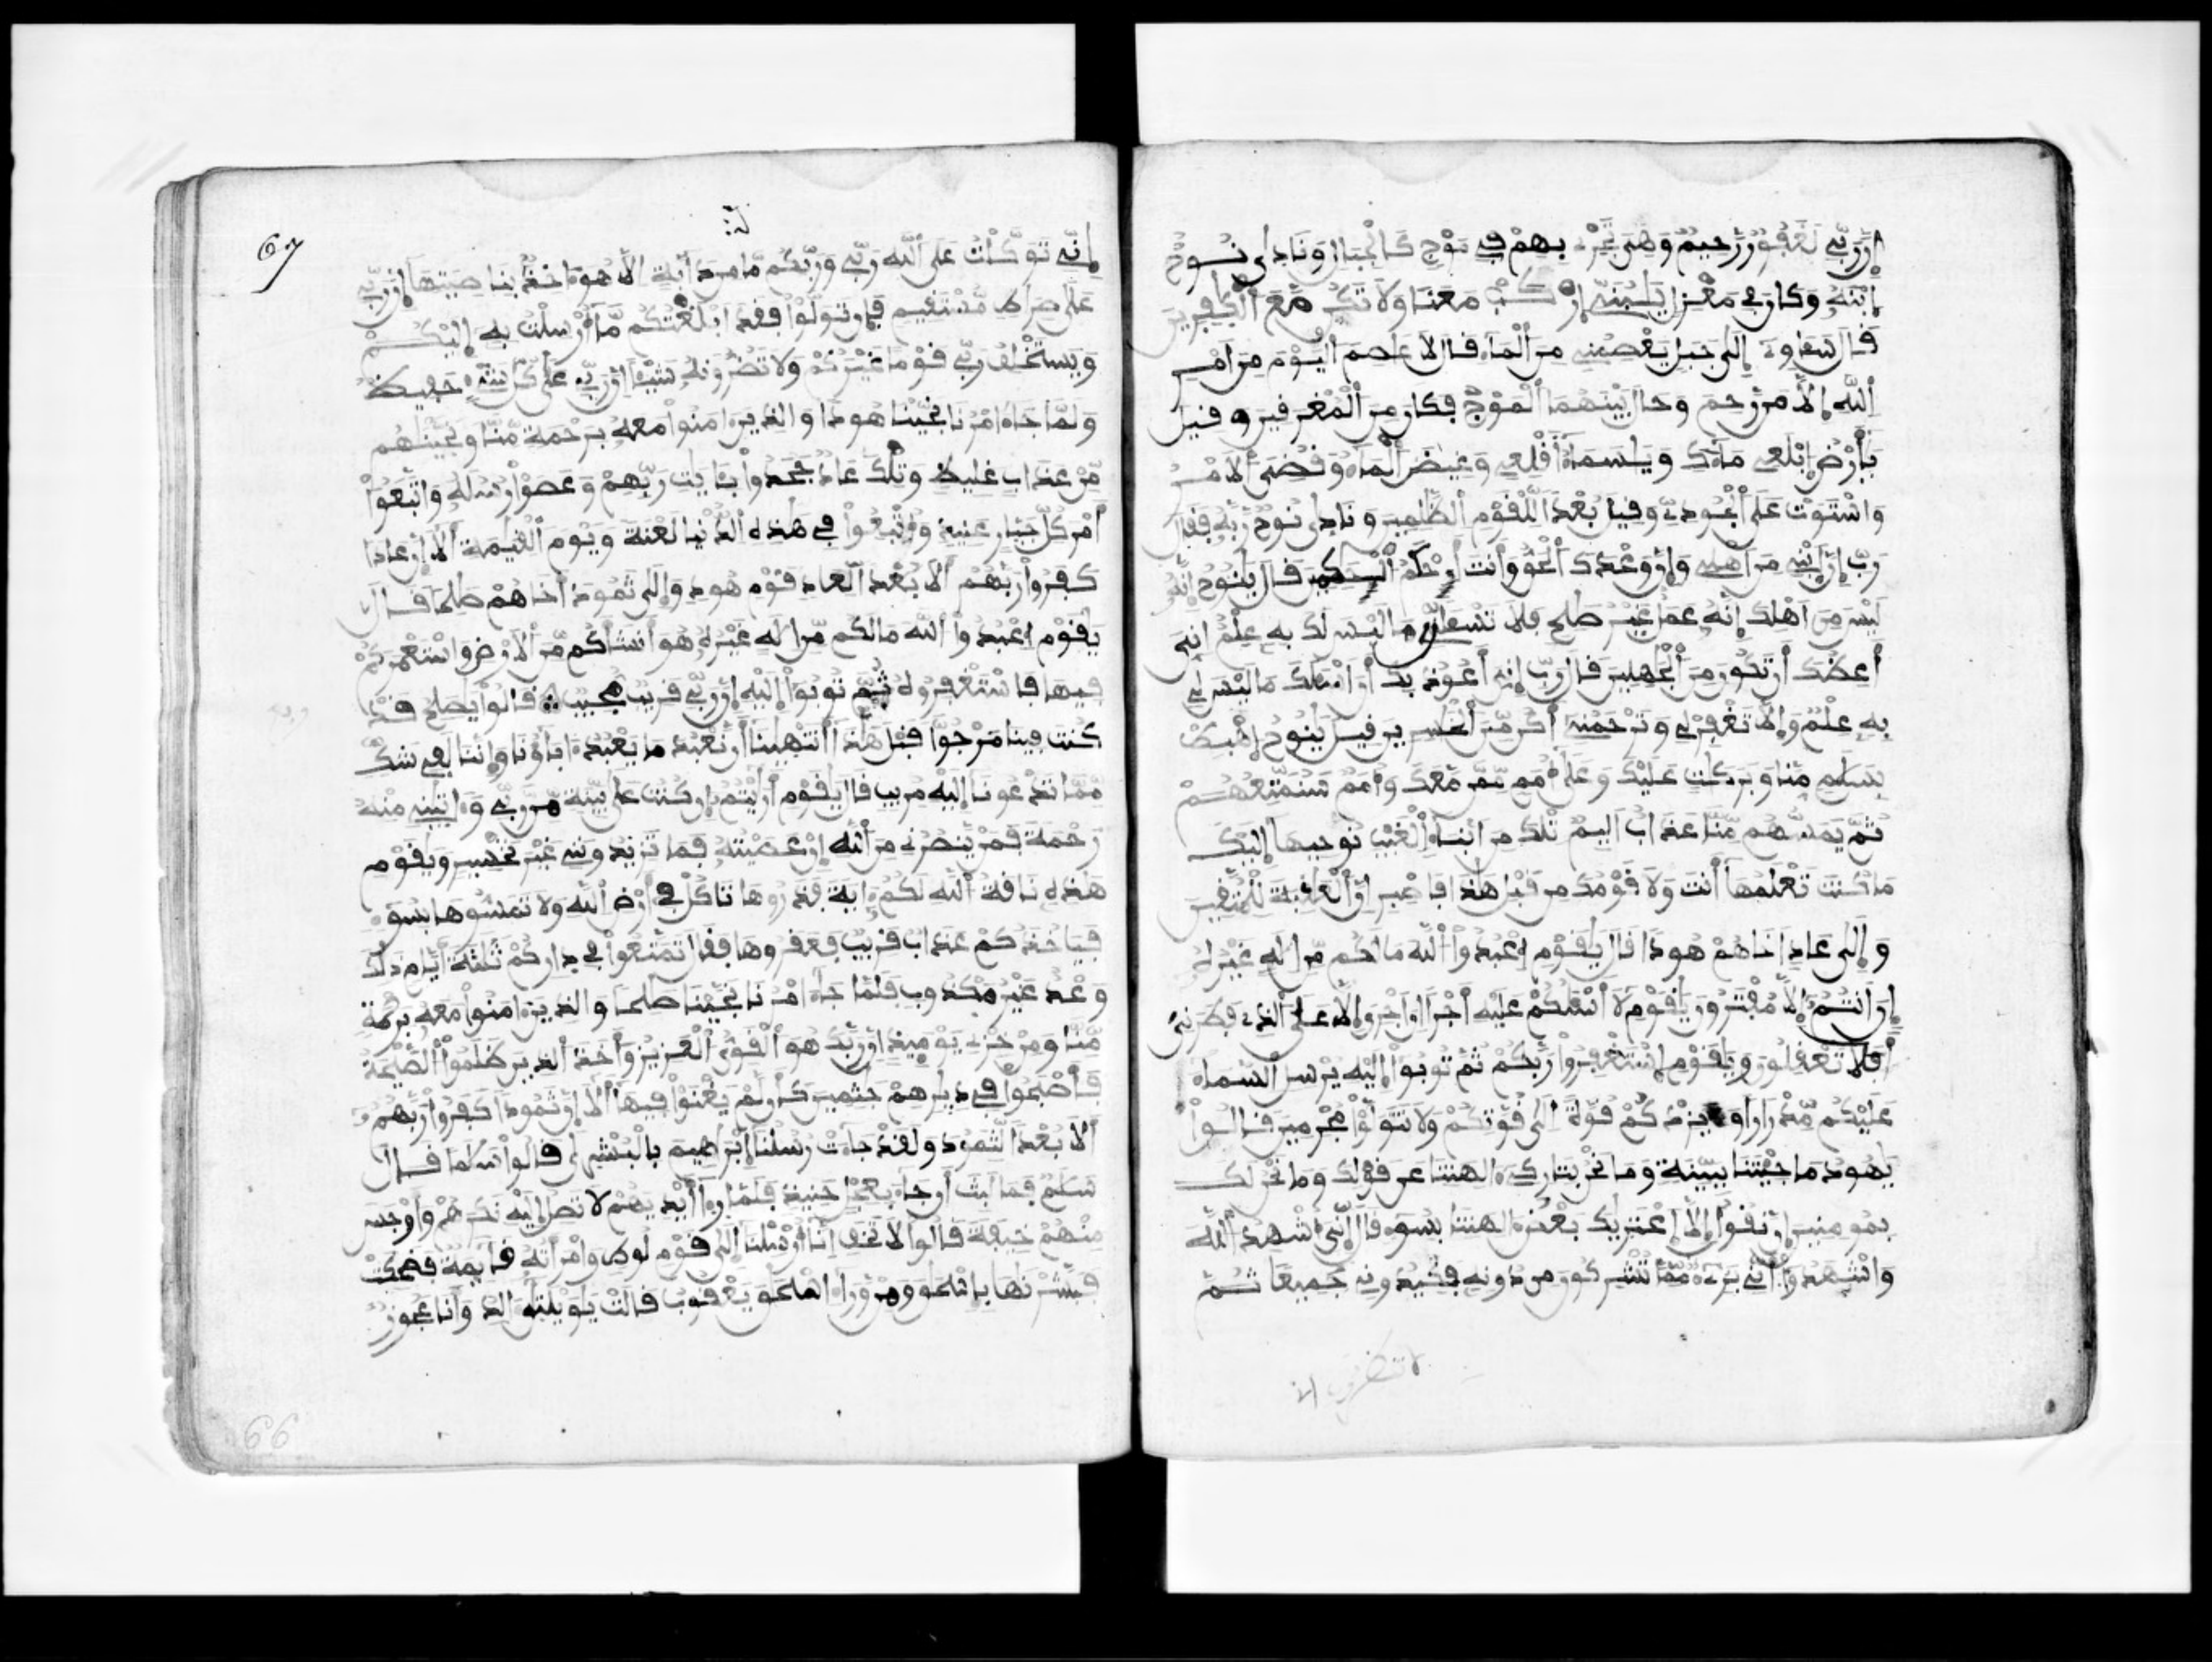 إن ربي لغفور رحيم وهي تجري بهم في موج كالجبال ونادى نوح
ابنه وكان في معزل يبني اركب معنا ولا تكن مع الكفرين
قال سءاوي إلى جبل يعصمني من الماء قال لا عاصم اليوم من امر
الله إلا من رحم وحال بينهما الموج فكان من المغرقين وقيل
يأرض ابلعي ماءك ويسماء أقلعي وغيض الماء وقضي الامر
واستوت على الجودي وقيل بعدا للقوم الظلمين ونادى نوح ربه فقال
رب إن ابني من اهلي وإن وعدك الحق وأنت أحكم الحكمين قال ينوح إنه
ليس من اهلك إنه عمل غير صلح فلا تسءلن ما ليس لك به علم اني
أعظك أن تكون من الجهلين قال رب إني أعوذ بك أن اسئلك ما ليس لي
به علم وإلا تغفر لي وترحمني أكن من الخسرين قيل ينوح اهبط
بسلم منا وبركت عليك وعلى أمم ممن معك وأمم سنمتعهم
ثم يمسهم منا عذاب اليم تلك من انباء الغيب نوحيها إليك
ما كنت تعلمها أنت ولا قومك من قبل هذا فاصبر إن العقبة للمتقين
وإلى عاد اخاهم هودا قال يقوم اعبدوا الله مالكم من اله غيره
إن انتم إلا مفترون يقوم لا أسئلكم عليه أجرا ان اجري إلا على الذي فطرني
أفلا تعقلون ويقوم استغفروا ربكم ثم توبوا إليه يرسل السماء
عليكم مدرارا ويزدكم قوة إلى قوتكم ولا تتولوا مجرمين قالوا
يهود ما جئتنا ببينة وما نحن بتاركي ءالهتنا عن قولك وما نحن لك
بمومنين ان نقول إلا اعتريك بعض ءالهتنا بسوء قال إني أشهد الله
واشهدوا أني بريء مما تشركون من دونه فكيدوني جميعا ثم
لا تنظرون إن
67
إني توكلت على الله ربي وربكم ما من دابة الا هو ءاخذ بناصيتها إن ربي
على صراط مستقيم فإن تولوا فقد ابلغتكم ما أرسلت به إليكم
ويستخلف ربي قوما غيركم ولا تضرونه شيئا إن ربي على كل شيء حفيظ
ولما جاء امرنا نجينا هودا والذين ءامنوا معه برحمة منا ونجينهم
من عذاب غليظ وتلك عاد جحدوا بئايت ربهم وعصوا رسله واتبعوا
أمر كل جبار عنيد وأتبعوا في هذه الدنيا لعنة ويوم القيمة ألا إن عادا
كفروا ربهم ألا بعدا لعاد قوم هود وإلى ثمود أخاهم صلحا قال
يقوم اعبدوا الله مالكم من اله غيره هو أنشأكم من الارض واستعمركم
فيها فاستغفروه ثم توبوا إليه إن ربي قريب مجيب قالوا يصلح قد
كنت فينا مرجوا قبل هذا أتنهينا أن نعبد ما يعبد ءاباؤنا وإننا لفي شك
مما تدعونا إليه مريب قال يقوم أريتم إن كنت على بينة من ربي وءاتيني منه
رحمة فمن ينصرني من الله إن عصيته فما تزيدونني غير تخسير ويقوم
هذه ناقة الله لكم ءاية فذروها تاكل في أرض الله ولا تمسوها بسوء
فياخذكم عذاب قريب فعقروها فقال تمتعوا في داركم ثلثة أيام ذلك
وعد غير مكذوب فلما جاء امرنا نجينا صلحا والذين ءامنوا معه برحمة
منا ومن خزي يومئذ إن ربك هو القوي العزيز وأخذ الذين ظلموا الصيحة
فأصبحوا في ديرهم جثمين كأن لم يغنوا فيها ألا إن ثمودا كفروا ربهم
ألا بعدا لثمود ولقد جاءت رسلنا إبرهيم بالبشرى قالوا سلما قال
سلم فما لبث أن جاء بعجل حنيذ فلما رءا أيديهم لا تصل إليه نكرهم وأوجس
منهم خيفة قالوا لا تخف إنا أرسلنا إلى قوم لوط وامرأته قائمة فضحكت
فبشرنها بإسحق ومن وراء اسحق يعقوب قالت يويلتى ءالد وأنا عجوز
66